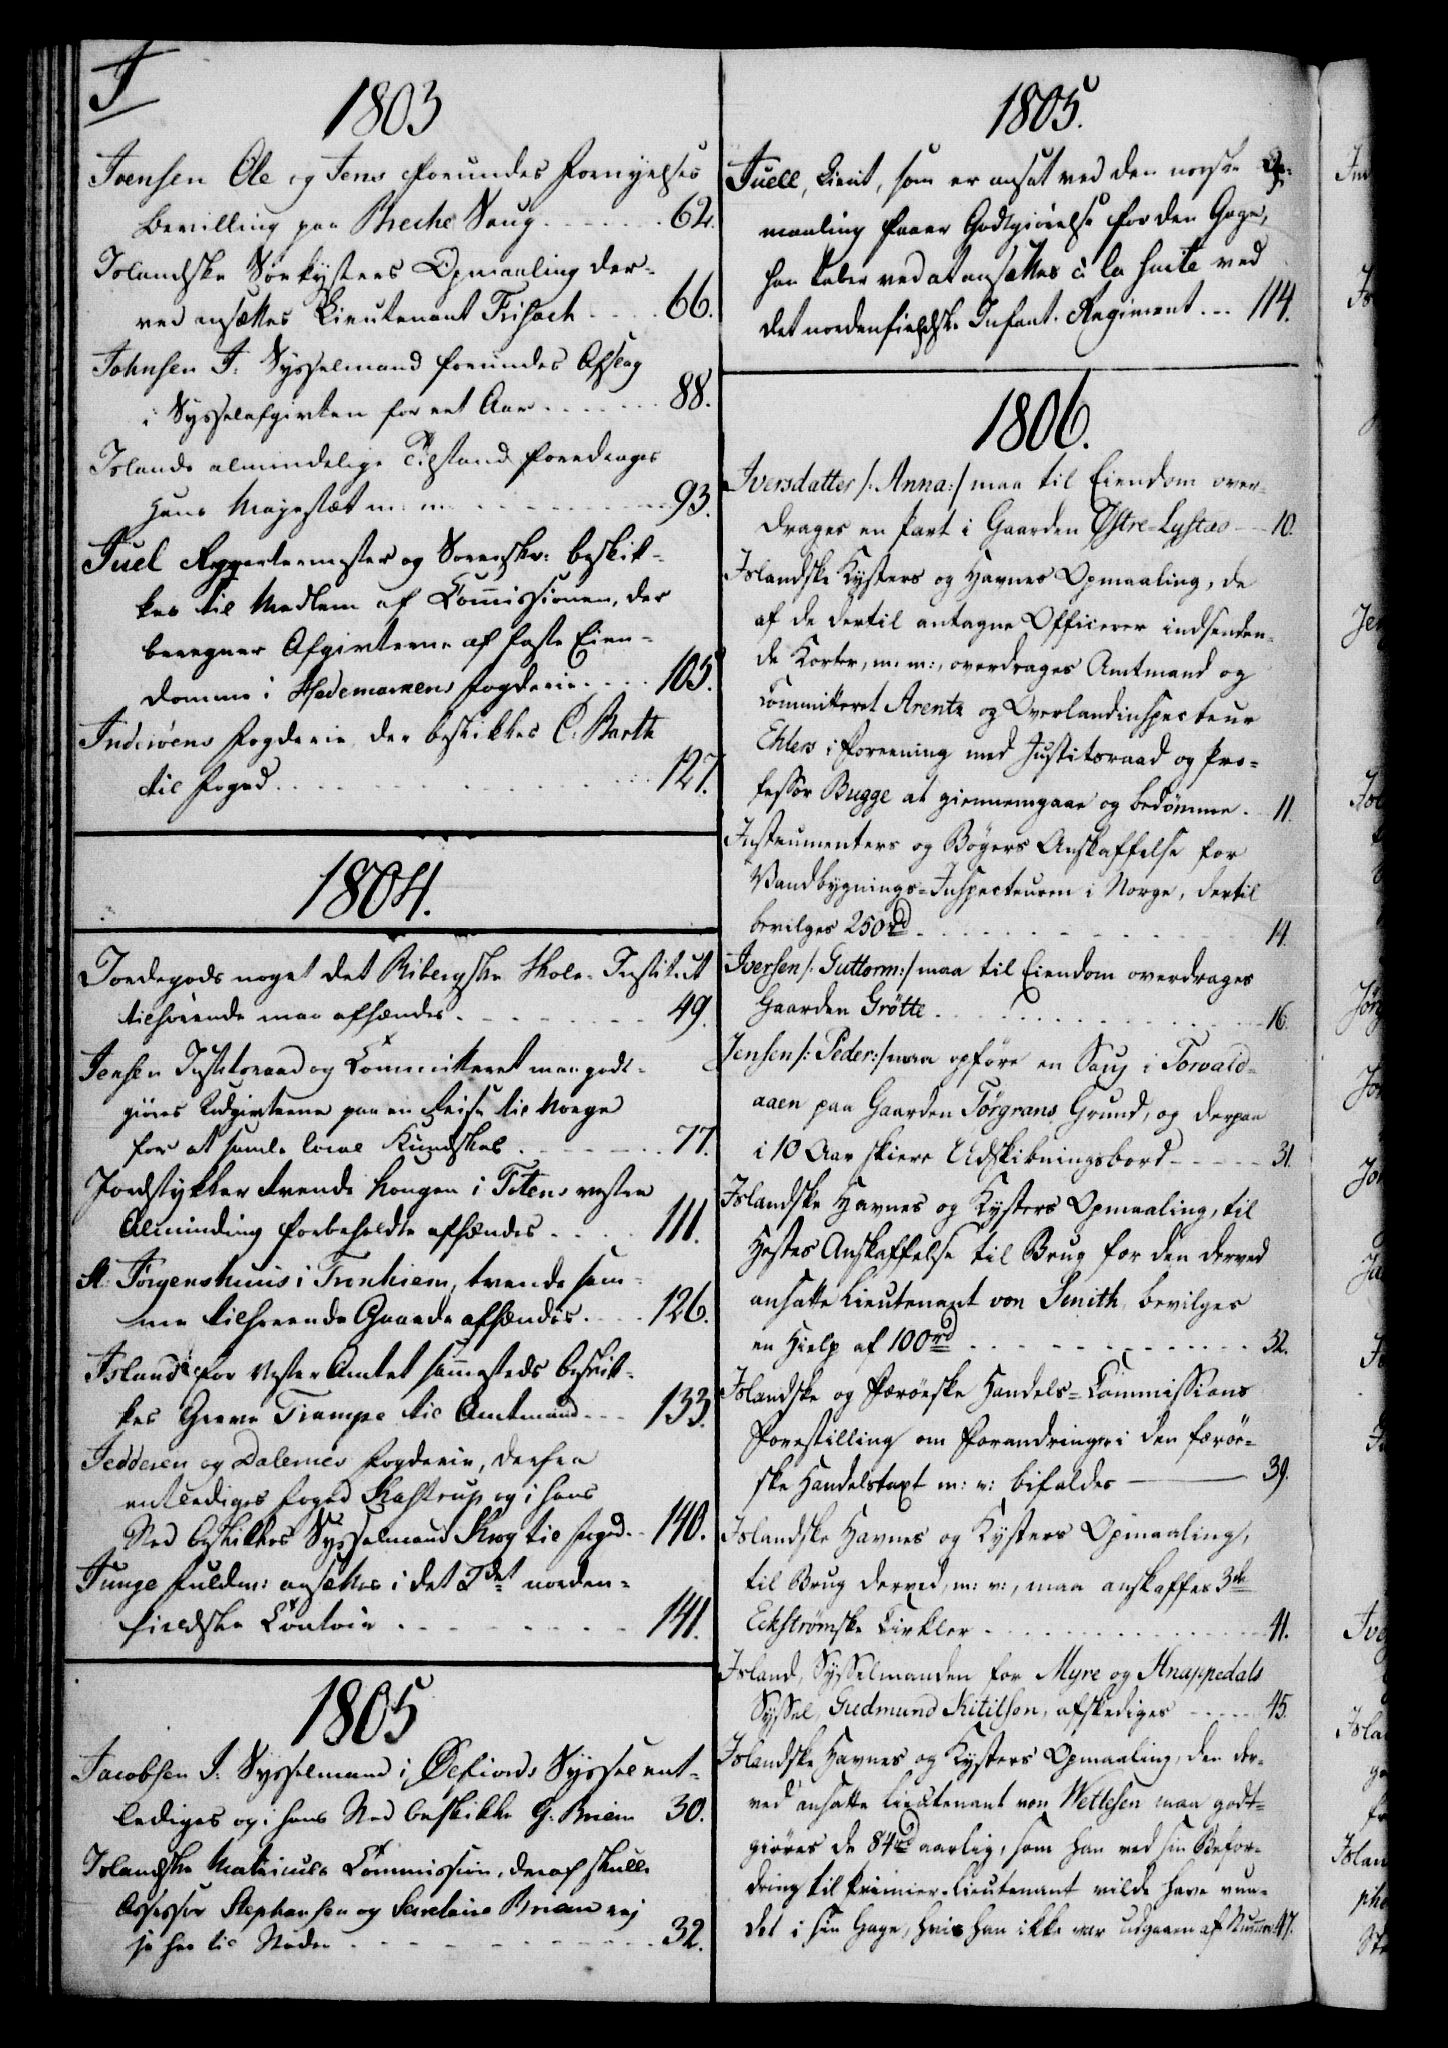 J
1803
Ivensen Ole og Jens forundes Fornyelses
Bevilling paa Breche Saug 62.
Islandske Søekysters Opmaaling der-
ved ansættes Lieutenant Frisach 66.
Johnsen J: Sysselmand forundes Afslag
i Sysselafgivten for eet Aar 88.
Islands almindelige Tilstand foredrages
Hans Majestæt m: m 93.
Juel Ryttermester og Sorenskr: beskik-
kes til Medlem af Com̄issionen, der
beregner Afgivterne af faste Eien-
domme i Hedemarkens Fogderie 105.
Inderøens Fogderie, der beskikkes C. Barth
til Foged 127.
1804.
Jordegods noget det Ribergske Skole-Institut
tilhørende maa afhændes 49.
Jensen Justitsraad og Committeret maa godt-
giøres Udgivterne paa en Reise til Norge
for at samle local Kundskab 77.
Jordstykker trende Kongen i Totens vestre
Alminding forbeholdte afhændes 111.
St. Jørgenshuus i Tronhiem, trende sam-
me tilhørende Gaarde afhændes 126.
Island for Vester Amtet sam̄esteds beskik-
kes Greve Trampe til Amtmand 133.
Jedderen og Dalernes Fogderie, derfra
entlediges Foged Kastrup og i hans
Sted beskikkes Sysselmand Krog til Foged 140.
Junge Fuldm: ansættes i det 2det norden-
fieldske Contoir 141.
1805
Jacobsen J: Sysselmand i Øefiords Syssel ent-
lediges og i hans Sted beskikke G. Briem 30.
Islandske Matriculs Commission, deraf skulle
Assessor Stephansen og Secretaire Briem ej
se her til Steder 32.
1805.
Juell, Lieut, som er ansat ved den norske Op-
maaling faaer Godtgiørelse for den Gage,
han taber ved at ansættes à la suite ved
det nordenfieldske Infant. Regiment 114.
1806.
Iversdatter /: Anna:/ maa til Eiendom over-
drages en Part i Gaarden Østre-Lystad 10.
Islandske Kysters og Havnes Opmaaling, de
af de dertil antagne Officerer indsenden-
de Korter, m: m:, overdrages Amtmand og
Committeret Arentz og Overlandinspecteur
Ehlers i Foreening med Justitsraad og Pro-
fessor Bugge at giennemgaae og bedømme 11.
Instrumenters og Bøgers Anskaffelse for
Vandbygnings-Inspecteuren i Norge, dertil
bevilges 250rd 14.
Iversen /: Guttorm:/ maa til Eiendom overdrages
Gaarden Grøtte 16.
Jensen /: Peder:/ maa opføre en Saug i Torvald-
aaen paa Gaarden Törgrans Grund, og derpaa
i 10 Aar skiere Udskibningsbord 31.
Islandske Havnes og Kysters Opmaaling, til
Hestes Anskaffelse til Brug for den derved
ansatte Lieutenant von Smith, bevilges
en Hielp af 100rd 32.
Islandske og Færöeske Handels-Commissions
Forestilling om Forandringer i den færöe-
ske Handelstaxt m: v: bifaldes 39.
Islandske Havnes og Kysters Opmaaling,
til Brug derved, m: v:, maa anskaffes 3de
Eckströmske Cirkler 41.
Island, Sysselmanden for Myre og Hnappedals
Syssel, Gudmund Kitilson, afskediges 45.
Islandske Havnes og Kysters Opmaaling, den der-
ved ansatte Lieutenant von Wetlesen maa godt-
giøres de 84rd aarlig, som han ved sin Befor-
dring til Premier-Lieutenant vilde have vun-
det i sin Gage, hvis han ikke var udgaaen af Num̄er 47.